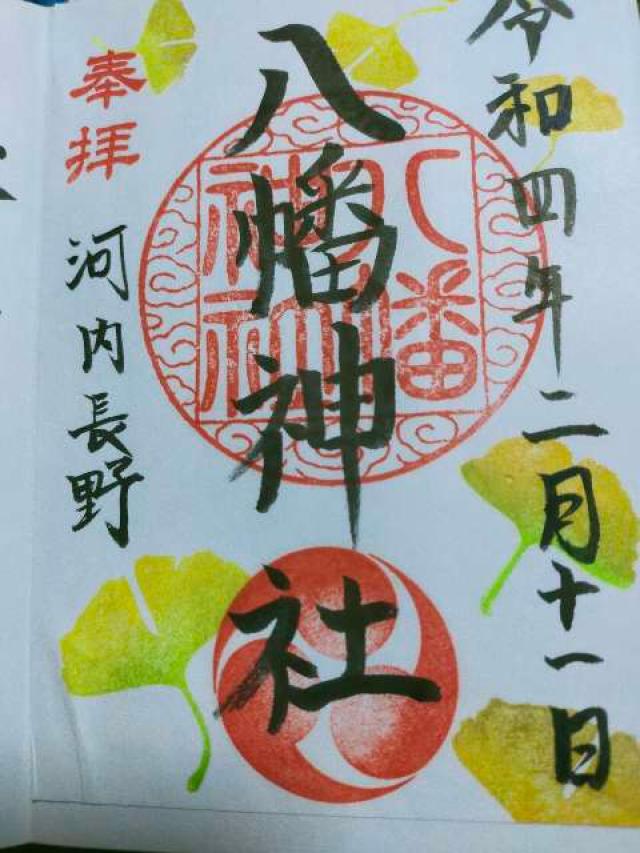 令和四年二月十一日
八幡神社
八幡
神社
奉拝
河内長野